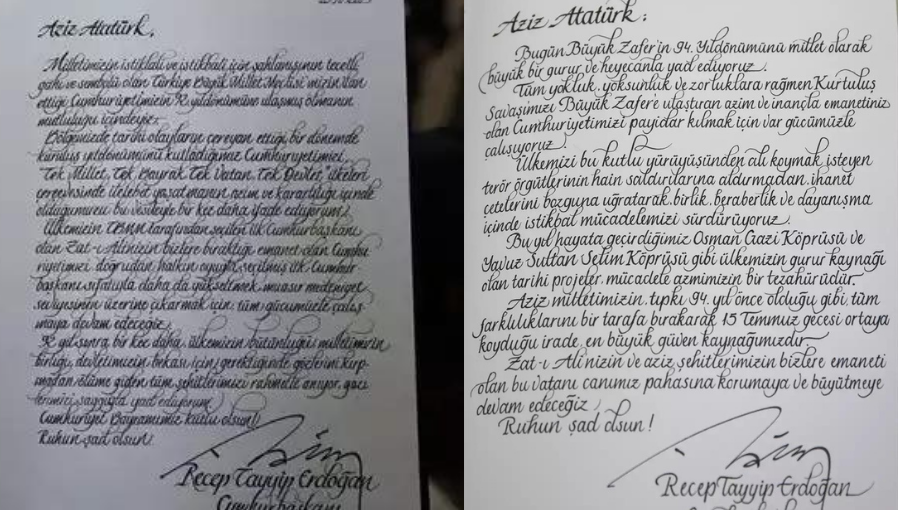 Aziz Atatürk,
Milletimizin istiklali ve istikbali için şahlanışının tecelli
gahı ve sembolü olan Türkiye Büyük Millet Meclisi'mizin ilan
ettiği Cumhuriyetimizin yıldönümüne ulaşmış olmanın
mutluluğu içindeyiz.
Bölgemizde tarihi olayların cereyan ettiği bir dönemde
kuruluş yıldönümünü kutladığımız Cumhuriyetimizi,
Tek Millet, Tek Bayrak, Tek Vatan, Tek Devlet ilkeleri
çerçevesinde ilelebet yaşatmanın azim ve kararlılığı içinde
olduğumuzu bu vesileyle bir kez daha ifade ediyorum.
Ülkemizin TBMM tarafından seçilen ilk Cumhurbaşkanı
olan Zat-ı Alinizin bizlere bıraktığı emanet olan Cumhu
riyetimizi, doğrudan halkın oyuyla seçilmiş ilk Cumhur
başkanı sıfatıyla daha da yükseltmek, muasır medeniyet
seviyesinin üzerine çıkarmak için, tüm gücümüzle çalış
maya devam edeceğiz.
yıl sonra bir kez daha, ülkemizin bütünlüğü, milletimizin
birliği, devletimizin bekası için gerektiğinde gözlerini kırp
madan ölüme giden tüm şehitlerimizi rahmetle anıyor, gazi
lerimizi saygıyla yad ediyorum.
Cumhuriyet Bayramımız kutlu olsun!
Ruhun şad olsun!
Recep Tayyip Erdoğan
Cumhurbaşkanı
Aziz Atatürk;
Bugün Büyük Zafer'in 94. Yıldönümünü millet olarak
büyük bir gurur ve heyecanla yad ediyoruz.
Tüm yokluk, yoksunluk ve zorluklara rağmen Kurtuluş
Savaşımızı Büyük Zafer'e ulaştıran azim ve inançla emanetiniz
olan Cumhuriyetimizi payidar kılmak için var gücümüzle
çalışıyoruz.
Ülkemizi bu kutlu yürüyüşünden alı koymak isteyen
terör örgütlerinin hain saldırılarına aldırmadan, ihanet
çetelerini bozguna uğratarak, birlik, beraberlik ve dayanışma
içinde istikbal mücadelemizi sürdürüyoruz.
Bu yıl hayata geçirdiğimiz Osman Gazi Köprüsü ve
Yavuz Sultan Selim Köprüsü gibi ülkemizin gurur kaynağı
olan tarihi projeler, mücadele azmimizin bir tezahürüdür.
Aziz milletimizin, tıpkı 94 yıl önce olduğu gibi, tüm
farklılıklarını bir tarafa bırakarak 15 Temmuz gecesi ortaya
koyduğu irade, en büyük güven kaynağımızdır.
Zat-ı Ali'nizin ve aziz şehitlerimizin bizlere emaneti
olan bu vatanı canımız pahasına korumaya ve büyütmeye
devam edeceğiz.
Ruhun şad olsun!
Recep Tayyip Erdoğan